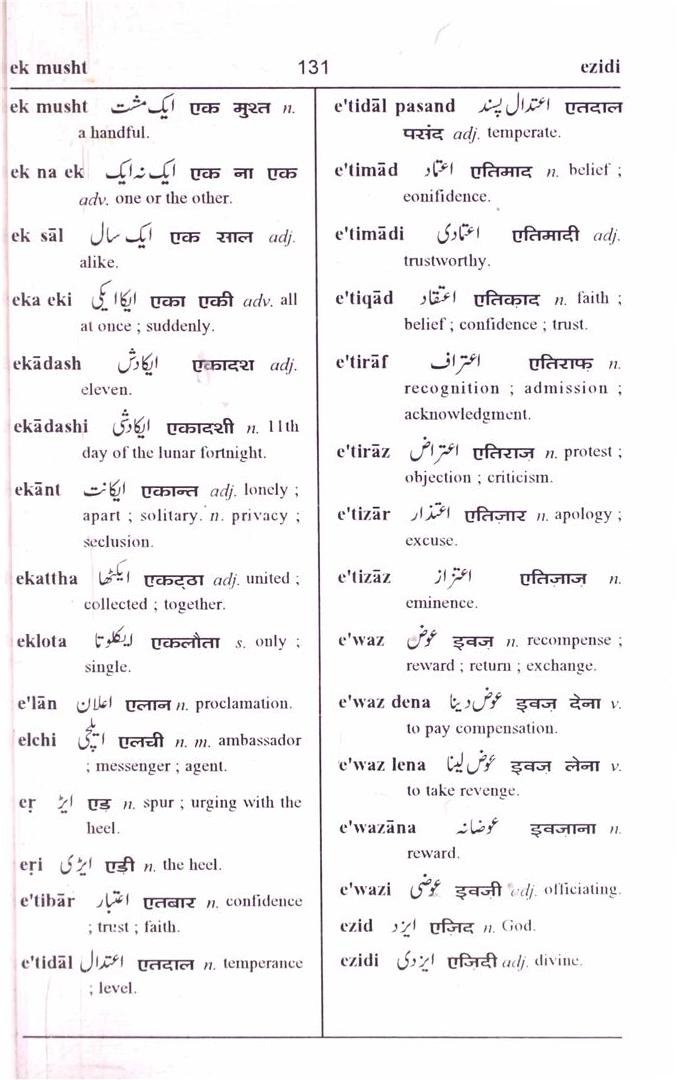 ek musht 131 ezidi
ek musht ایک مشت एक मुश्त n.
a handful.
ek na ek ایک نہ ایک एक ना एक
adv. one or the other.
ek sāl ایک سال एक साल adj.
alike.
eka eki ایکا ایکی एका एकी adv. all
at once ; suddenly.
ekādash ایکادش एकादश adj.
eleven.
ekādashi ایکادشی एकादशी n. 11th
day of the lunar fortnight.
ekānt ایکانت एकान्त adj. lonely ;
apart ; solitary. n. privacy ;
seclusion.
ekattha ایکٹھا एकट्ठा adj. united ;
collected ; together.
eklota ایکلوتا एकलौता s. only ;
single.
e'lān اعلان एलान n. proclamation.
elchi ایلچی एलची n. m. ambassador
; messenger ; agent.
eṛ ایڑ एड़ n. spur ; urging with the
heel.
eṛi ایڑی एड़ी n. the heel.
e'tibār اعتبار एतबार n. confidence
; trust ; faith.
e'tidāl اعتدال एतदाल n. temperance
; level.
e'tidāl pasand اعتدال پسند एतदाल
पसंद adj. temperate.
e'timād اعتماد एतिमाद n. belief ;
eonifidence.
e'timādi اعتمادی एतिमादी adj.
trustworthy.
e'tiqād اعتقاد एतिक़ाद n. faith ;
belief ; confidence ; trust.
e'tirāf اعتراف एतिराफ़ n.
recognition ; admission ;
acknowledgment.
e'tirāz اعتراض एतिराज़ n. protest ;
objection ; criticism.
e'tizār اعتذار एतिज़ार n. apology ;
excuse.
e'tizāz اعتزاز एतिज़ाज़ n.
eminence.
e'waz عوض इवज़ n. recompense ;
reward ; return ; exchange.
e'waz dena عوض دینا इवज़ देना v.
to pay compensation.
e'waz lena عوض لینا इवज़ लेना v.
to take revenge.
e'wazāna عوضانہ इवज़ाना n.
reward.
e'wazi عوضی इवज़ी adj. officiating.
ezid ایزد एज़िद n. God.
ezidi ایزدی एज़िदी adj. divine.